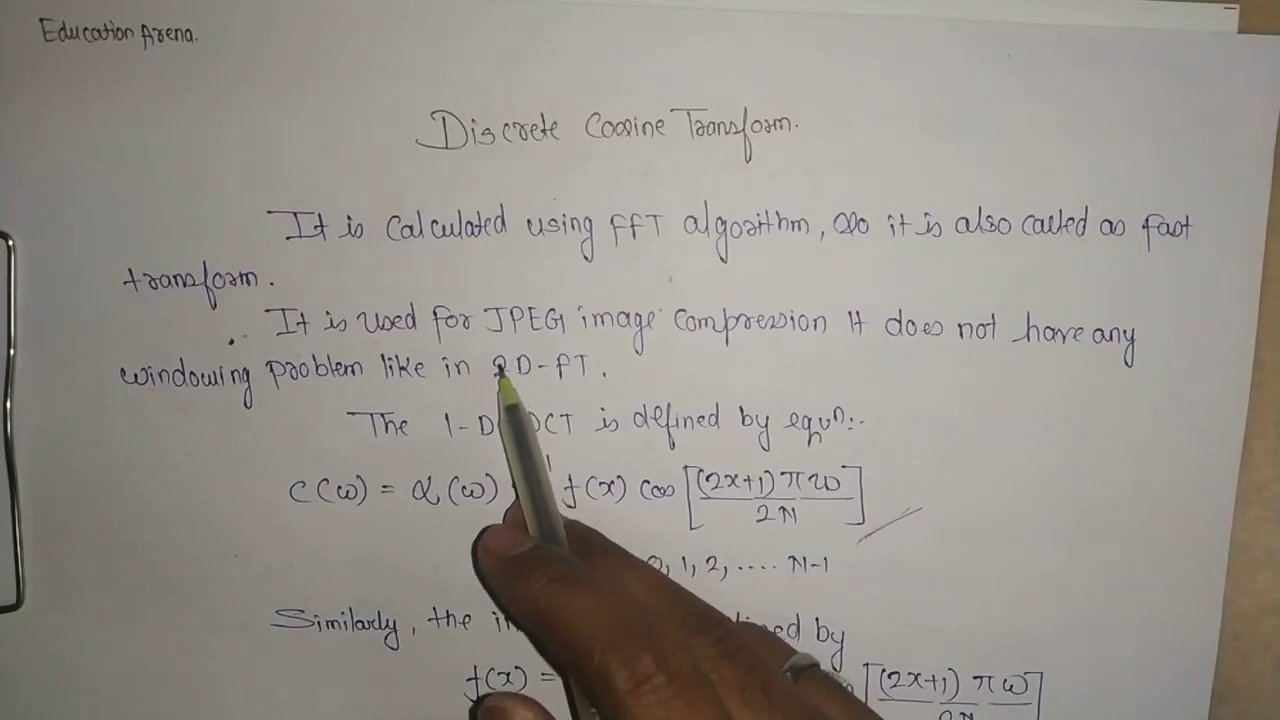 Education Arena.
Discrete Cosine Transform.
It is calculated using FFT algorithm, so it is also called as fast
transform.
It is used for JPEG image compression It does not have any
windowing problem like in 2D-FT.
The 1-D DCT is defined by equn:-
C(ω) = α(ω) f(x) cos [(2x+1) π ω / 2N]
0, 1, 2, .... N-1
Similarly, the by
f(x) = [(2x+1) π ω / 2N]